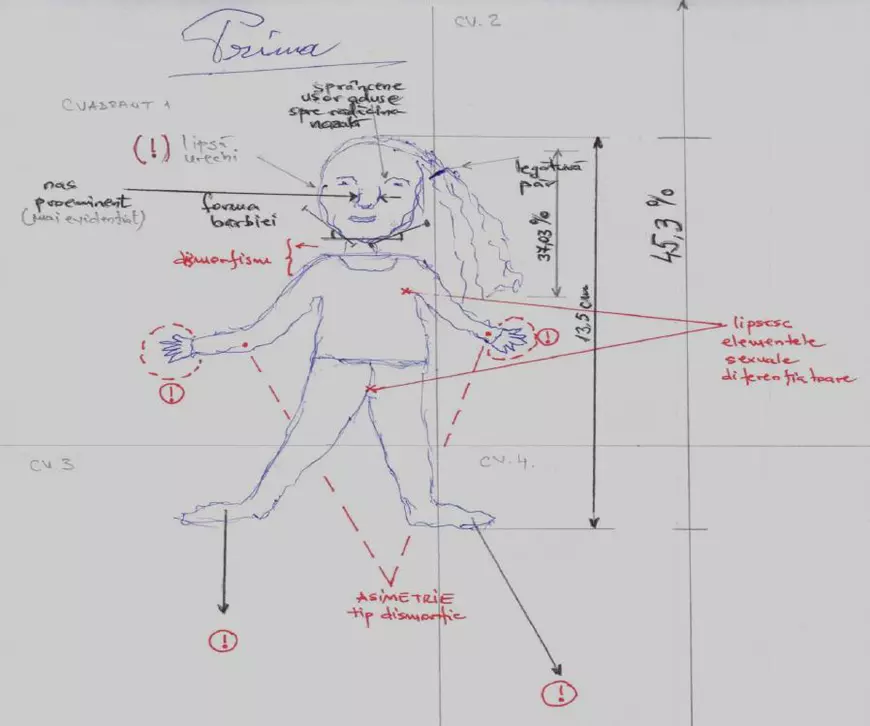 Prima
CV. 2
CUADRANT 1
sprâncene
ușor aduse
spre rădăcina
nazală
(!) lipsă
urechi
nas
proeminent
(mai evidențiat)
forma
bărbiei
legătură
păr
dismorfism
37,03 %
13,5 cm
45,3 %
!
!
lipsesc
elementele
sexuale
diferențiatoare
CV. 3
CV. 4.
ASIMETRIE
tip dismorfic
!
!